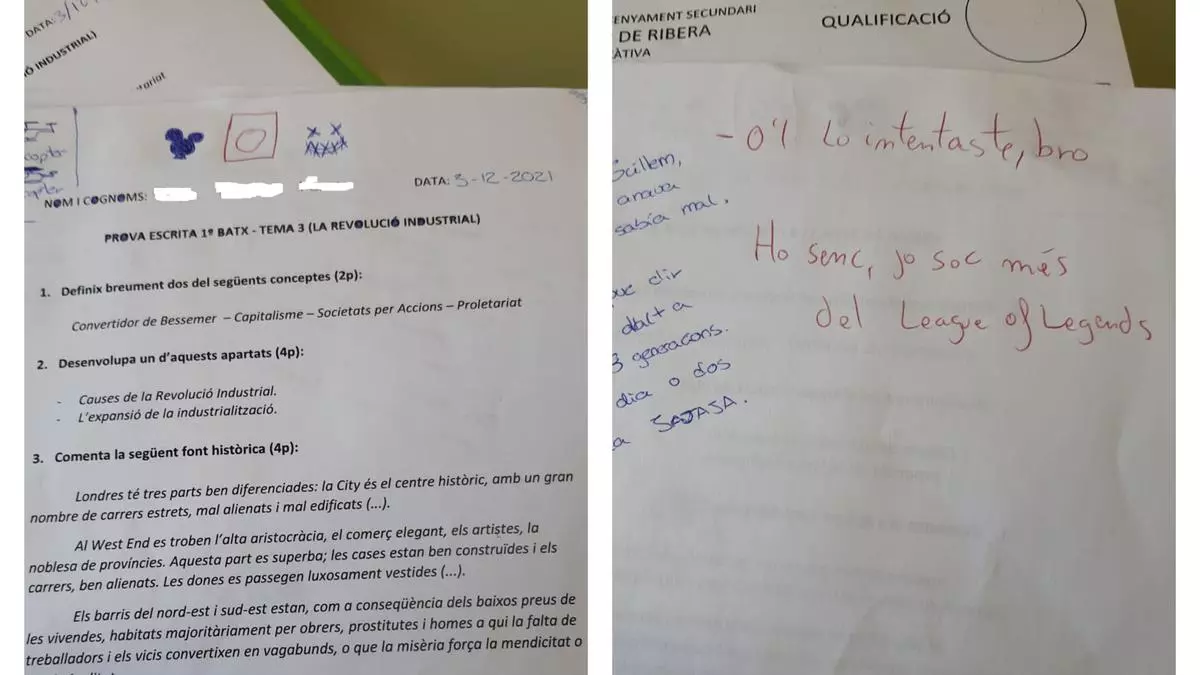 DATA: 3/10
Ó INDUSTRIAL)
tariat
NOM I COGNOMS:
DATA: 3-12-2021
PROVA ESCRITA 1º BATX - TEMA 3 (LA REVOLUCIÓ INDUSTRIAL)
1. Definix breument dos del següents conceptes (2p):
Convertidor de Bessemer – Capitalisme – Societats per Accions – Proletariat
2. Desenvolupa un d'aquests apartats (4p):
- Causes de la Revolució Industrial.
- L'expansió de la industrialització.
3. Comenta la següent font històrica (4p):
Londres té tres parts ben diferenciades: la City és el centre històric, amb un gran
nombre de carrers estrets, mal alienats i mal edificats (...).
Al West End es troben l'alta aristocràcia, el comerç elegant, els artistes, la
noblesa de províncies. Aquesta part es superba; les cases estan ben construïdes i els
carrers, ben alienats. Les dones es passegen luxosament vestides (...).
Els barris del nord-est i sud-est estan, com a conseqüència dels baixos preus de
les vivendes, habitats majoritàriament per obrers, prostitutes i homes a qui la falta de
treballadors i els vicis convertixen en vagabunds, o que la misèria força la mendicitat o
ENYAMENT SECUNDARI
DE RIBERA
ÀTIVA
QUALIFICACIÓ
- 0'1 Lo intentaste, bro
Guillem,
anava
sabía mal.
Ho senc, jo soc més
del League of Legends
que dir
dalt a
3 generacons.
dia o dos
a SATASA.